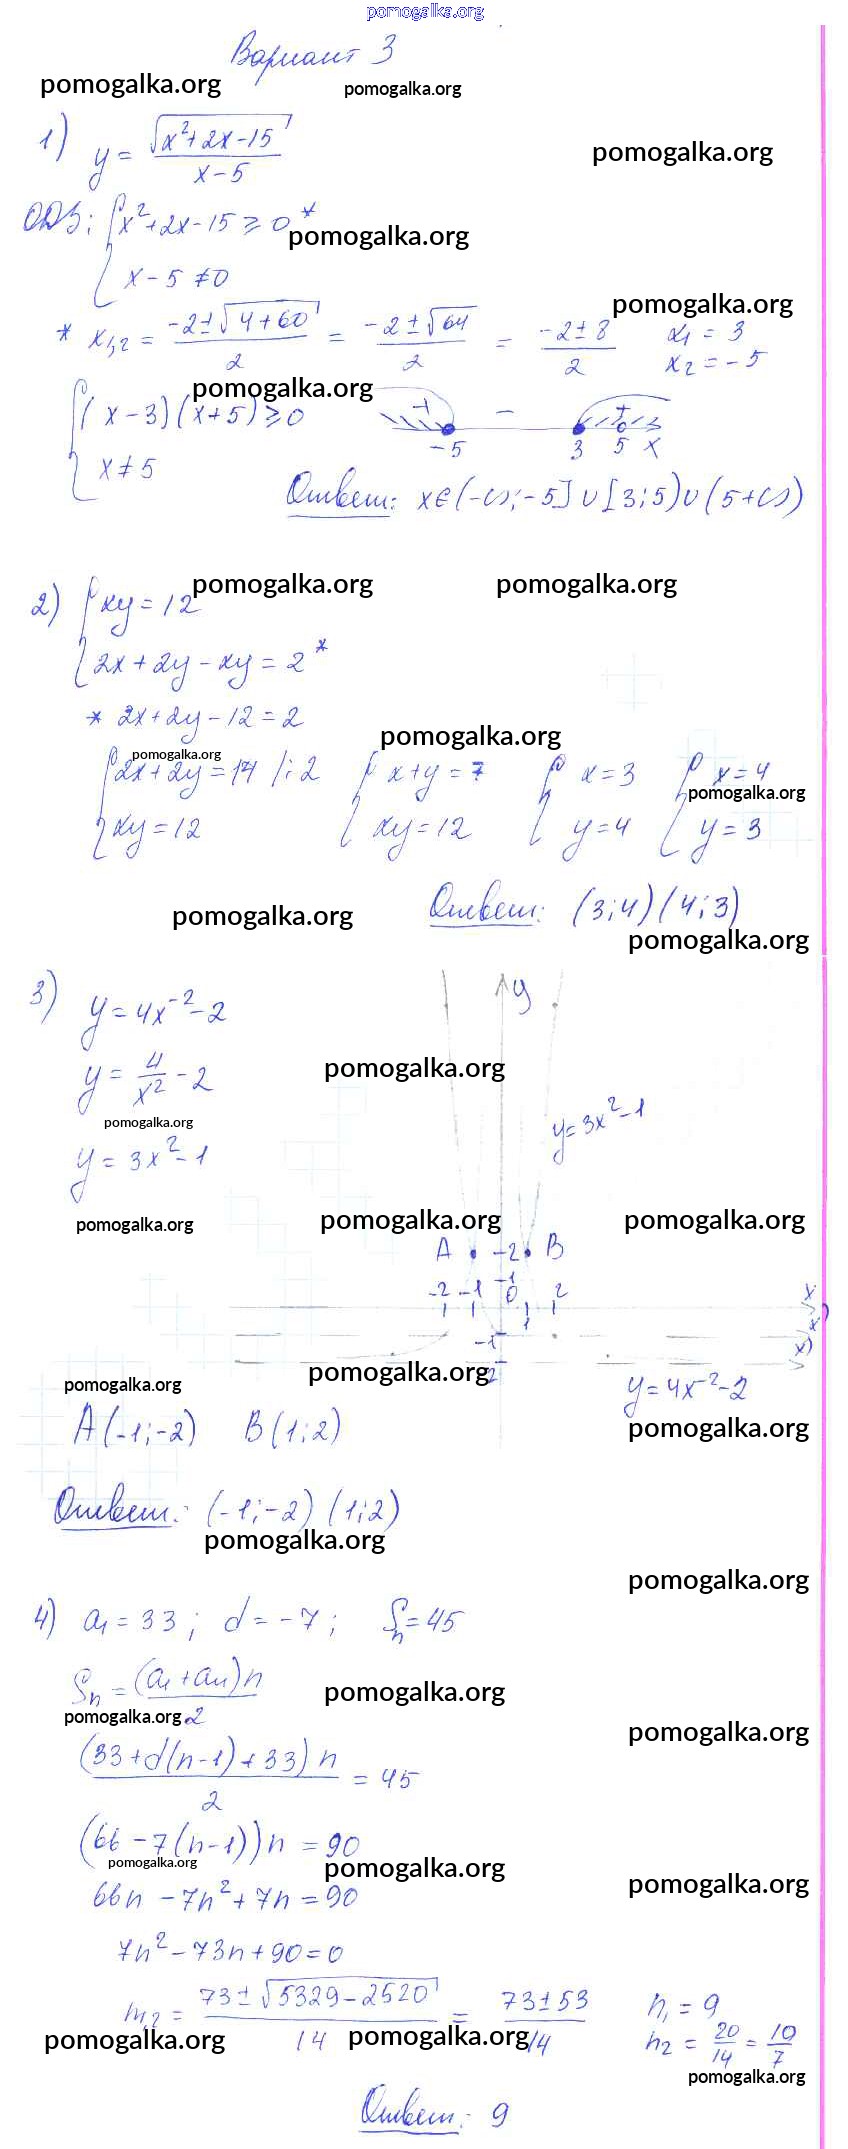 pomogalka.org
Вариант 3
pomogalka.org pomogalka.org
1) y = √(x²+2x-15) / (x-5)
pomogalka.org
ОДЗ: { x²+2x-15 ≥ 0 *
pomogalka.org
x - 5 ≠ 0
pomogalka.org
* x₁,₂ = (-2±√(4+60))/2 = (-2±√64)/2 = (-2±8)/2 x₁ = 3
x₂ = -5
pomogalka.org
{ (x-3)(x+5) ≥ 0 + - +
-5 3 5 x
x ≠ 5
Ответ: x∈(-∞;-5]∪[3;5)∪(5+∞)
2) { xy = 12 pomogalka.org pomogalka.org
2x+2y-xy = 2 *
* 2x+2y-12 = 2
pomogalka.org
pomogalka.org
{ 2x+2y = 14 /:2 { x+y = 7 { x = 3 { x = 4
pomogalka.org
xy = 12 xy = 12 y = 4 y = 3
pomogalka.org Ответ: (3;4) (4;3)
pomogalka.org
3) y = 4x⁻²-2 y
y = 4/x² - 2 pomogalka.org
pomogalka.org y = 3x²-1
y = 3x²-1
pomogalka.org pomogalka.org pomogalka.org
A -2 B
-1
-2 -1 0 2 x
1 x
-1 x
pomogalka.org pomogalka.org 2 y = 4x⁻²-2
A(-1;-2) B(1;2) pomogalka.org
Ответ: (-1;-2) (1;2)
pomogalka.org
pomogalka.org
4) a₁ = 33; d = -7; Sₙ = 45
Sₙ = (a₁+aₙ)n / 2 pomogalka.org
pomogalka.org pomogalka.org
(33+d(n-1)+33)n / 2 = 45
(66-7(n-1))n = 90
pomogalka.org pomogalka.org pomogalka.org
66n - 7n²+7n = 90
7n²-73n+90 = 0
n₁,₂ = (73±√(5329-2520))/14 = (73±53)/14 n₁ = 9
n₂ = 20/14 = 10/7
pomogalka.org pomogalka.org
pomogalka.org
Ответ: 9